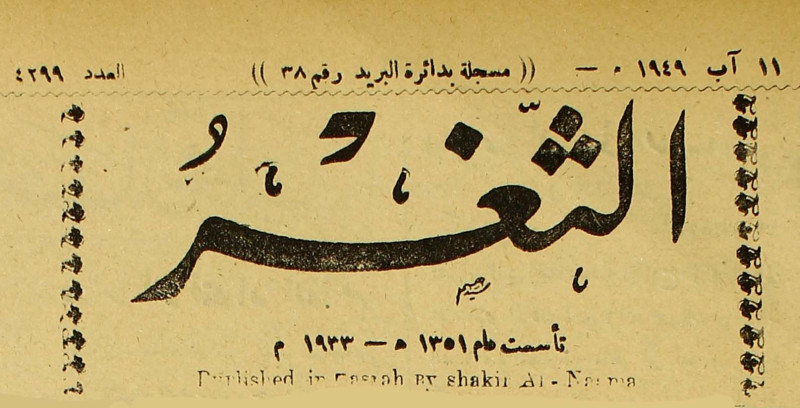 ١١ آب ١٩٤٩ م — (( مسجلة بدائرة البريد رقم ٣٨ )) العدد ٤٢٩٩
الثَّغْرُ
تأسست عام ١٣٥١ ه — ١٩٣٣ م
Published in Basrah By shakir Al-Neama